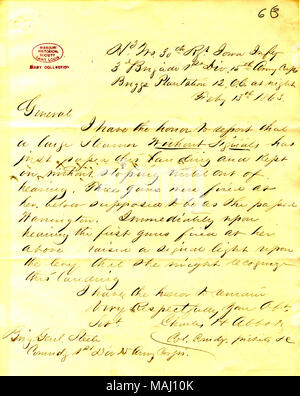 68
MISSOURI
HISTORICAL
SOCIETY
SAINT LOUIS
MARY COLLECTION
Hd Qrs 30th Regt Iowa Infty
3d Brigade 1st Div. 15th Army Corps
Briggs Plantation 12, Oclo at night
Feby 15th 1863.
General
I have the honor to report that
a large Steamer Without Signals has
just passed this Landing and kept
on without stoping until out of
hearing. Three guns were fired at
her below supposed to be at the
Immediately upon
hearing the first guns fired at her
above raised a signal light upon
the levy that she might recognize
this Landing
I have the honor to remain
Very Respectfully Your Obt.
Servt. Charles H Abbott
Col. Comdg.
Brig Genl. Steele
Comndg 1st Div 15 Army Corps.
alamy
Image ID: MAJ10K
www.alamy.com